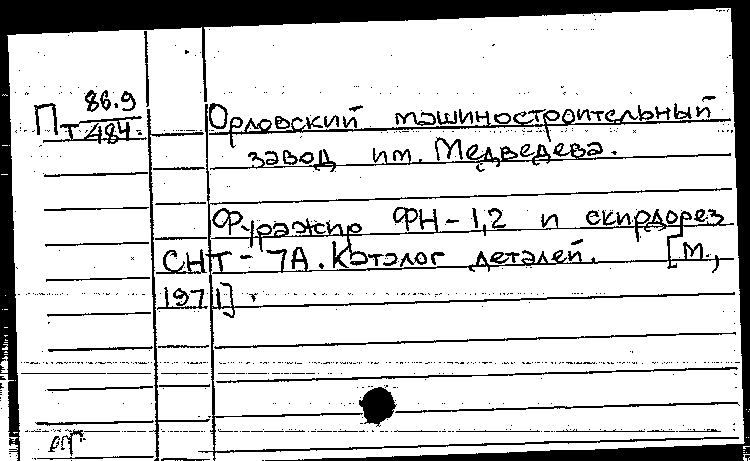 П 86.9
Т 484.
Орловский машиностроительный
завод им. Медведева.
Фуражир ФН-1,2 и скирдорез
СНТ-7А. Каталог деталей. [М.,
1971].